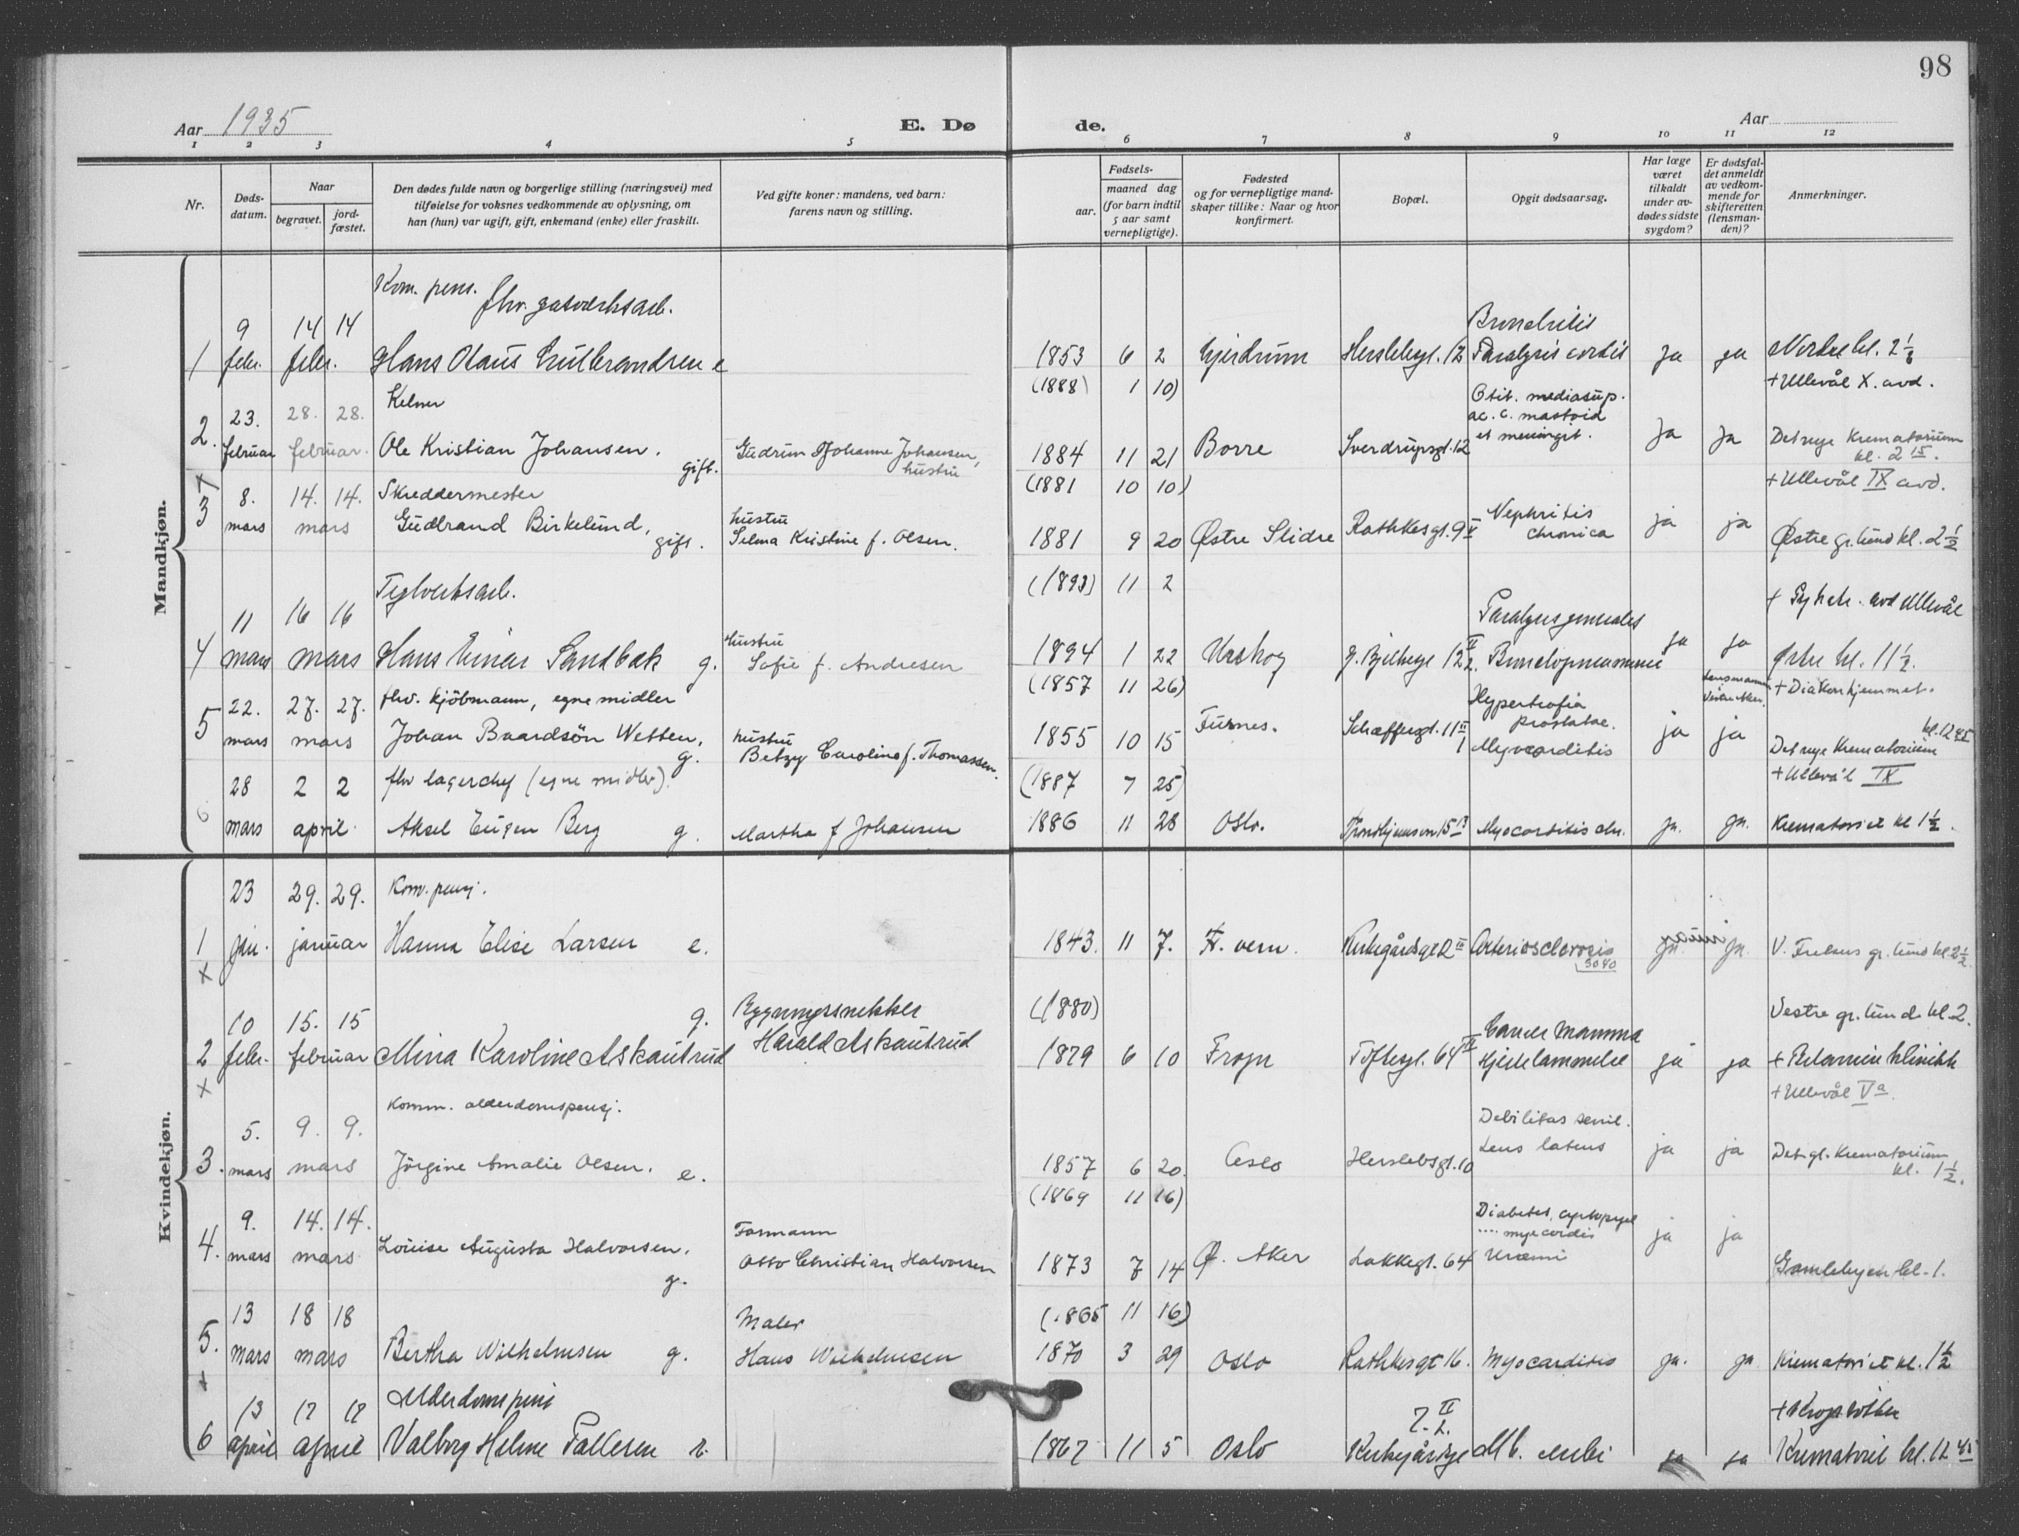 98
Aar 1935
E. Dø
de.
Aar
1 2 3 4 5 6 7 8 9 10 11 12
Nr.
Døds-
datum.
Naar
begravet.
jord-
fæstet.
Den dødes fulde navn og borgerlige stilling (næringsvei) med
tilføielse for voksnes vedkommende av oplysning, om
han (hun) var ugift, gift, enkemand (enke) eller fraskilt.
Ved gifte koner: mandens, ved barn:
farens navn og stilling.
Fødsels-
aar.
maaned dag
(for barn indtil
5 aar samt
vernepligtige).
Fødested
og for vernepligtige mand-
skaper tillike: Naar og hvor
konfirmert.
Bopæl.
Opgit dødsaarsag.
Har læge
været
tilkaldt
under av-
dødes sidste
sygdom?
Er dødsfal-
det anmeldt
av vedkom-
mende for
skifteretten
(lensman-
den)?
Anmerkninger.
Mandkjøn.
Kom. pens. fhv. gasverksarb.
9 14 14 Bronchitis
1 febr. febr. Hans Olaus Gulbrandsen e 1853 6 2 Gjerdrum Herslebsgt. 12 Paralysis cordis ja ja Nordre kl. 2½
(1888) 1 10) + Ullevål X. avd.
Kelner Otit. media sup.
23. 28. 28. ac. c. mastoid
2. februar februar. Ole Kristian Johansen. gift. Gudrun Johanne Johansen, hustru 1884 11 21 Borre Sverdrupsgt. 12 et meningit. ja ja Det nye Krematorium
kl. 2 15.
(1881 10 10) + Ullevål IX avd.
x
3 8. 14. 14. Skreddermester
mars mars Gudbrand Birkelund, gift. hustru
Selma Kristine f. Olsen. 1881 9 20 Østre Slidre Rathkesgt. 9 Nephritis
chronica ja ja Østre gr. lund kl. 2½
Teglverksarb. (1893) 11 2
11 16 16
4 mars mars Hans Einar Sandbæk g. hustru
Sofie f. Andresen 1894 1 22 Urskog ja ja Østre kl. 11½.
(1857 11 26) Lensmannen
Vestre Aker. + Diakonhjemmet.
22. 27. 27. fhv. kjøbmann, egne midler Hypertrofia
5 mars mars Johan Baardsøn Wetten, g. hustru
Betzy Caroline f. Thomassen. 1855 10 15 Furnes. Schæffersgt. 11 prostatae.
Myocarditis ja ja kl. 12 45
Det nye Krematorium
(1887 7 25) + Ullevål IX
28 2 2 fhv lagerchef (egne midler).
6 mars april Aksel Eugen Berg g. Martha f Johansen 1886 11 28 Oslo. Myocarditis chr. ja. ja. Krematoriet kl 1½.
Kvindekjøn.
23 29. 29. Kom. pensj.
1 jan. januar Hanna Elise Larsen e. 1843. 11 7. Arteriosclerosis ja. ja. V. Frelsers gr. lund kl. 2½
x
(1880) Vestre gr. lund kl. 2.
10 15. 15 g. Bygningssnekker
2 febr. februar Mina Karoline Askautrud Harald Askautrud 1879 6 10 Frogn Toftesgt. 64 Cancer Mamma
Hjertelammelse ja ja
x + Ullevål Va.
Komm. alderdomspensj. Debilitas senil.
5. 9. 9.
3. mars mars Jörgine Amalie Olsen. e. 1857 6 20. Oslo Herslebsgt. 10 Lens latens ja ja Det gl. Krematorium
kl. 1½.
(1869 11 16)
9. 14. 14.
4. mars mars Louise Augusta Halvorsen. g. Formann
Otto Christian Halvorsen 1873 7 14 Ø. Aker Lakkegt. 64 Diabetes,
Uræmi ja ja Gamlebyen kl. 1.
(1865 11 16)
13 18 18 Maler
5. mars mars Bertha Wilhelmsen g. Hans Wilhelmsen 1870 3 29 Oslo Rathkesgt 16. Myocarditis ja. ja Krematoriet kl. 1½
x
13 17 17 Alderdomspens
6 april april Valborg Helene Pallesen 1867 11 5 Oslo Kirkegårdsgt ja ja Krematoriet kl. 12 45